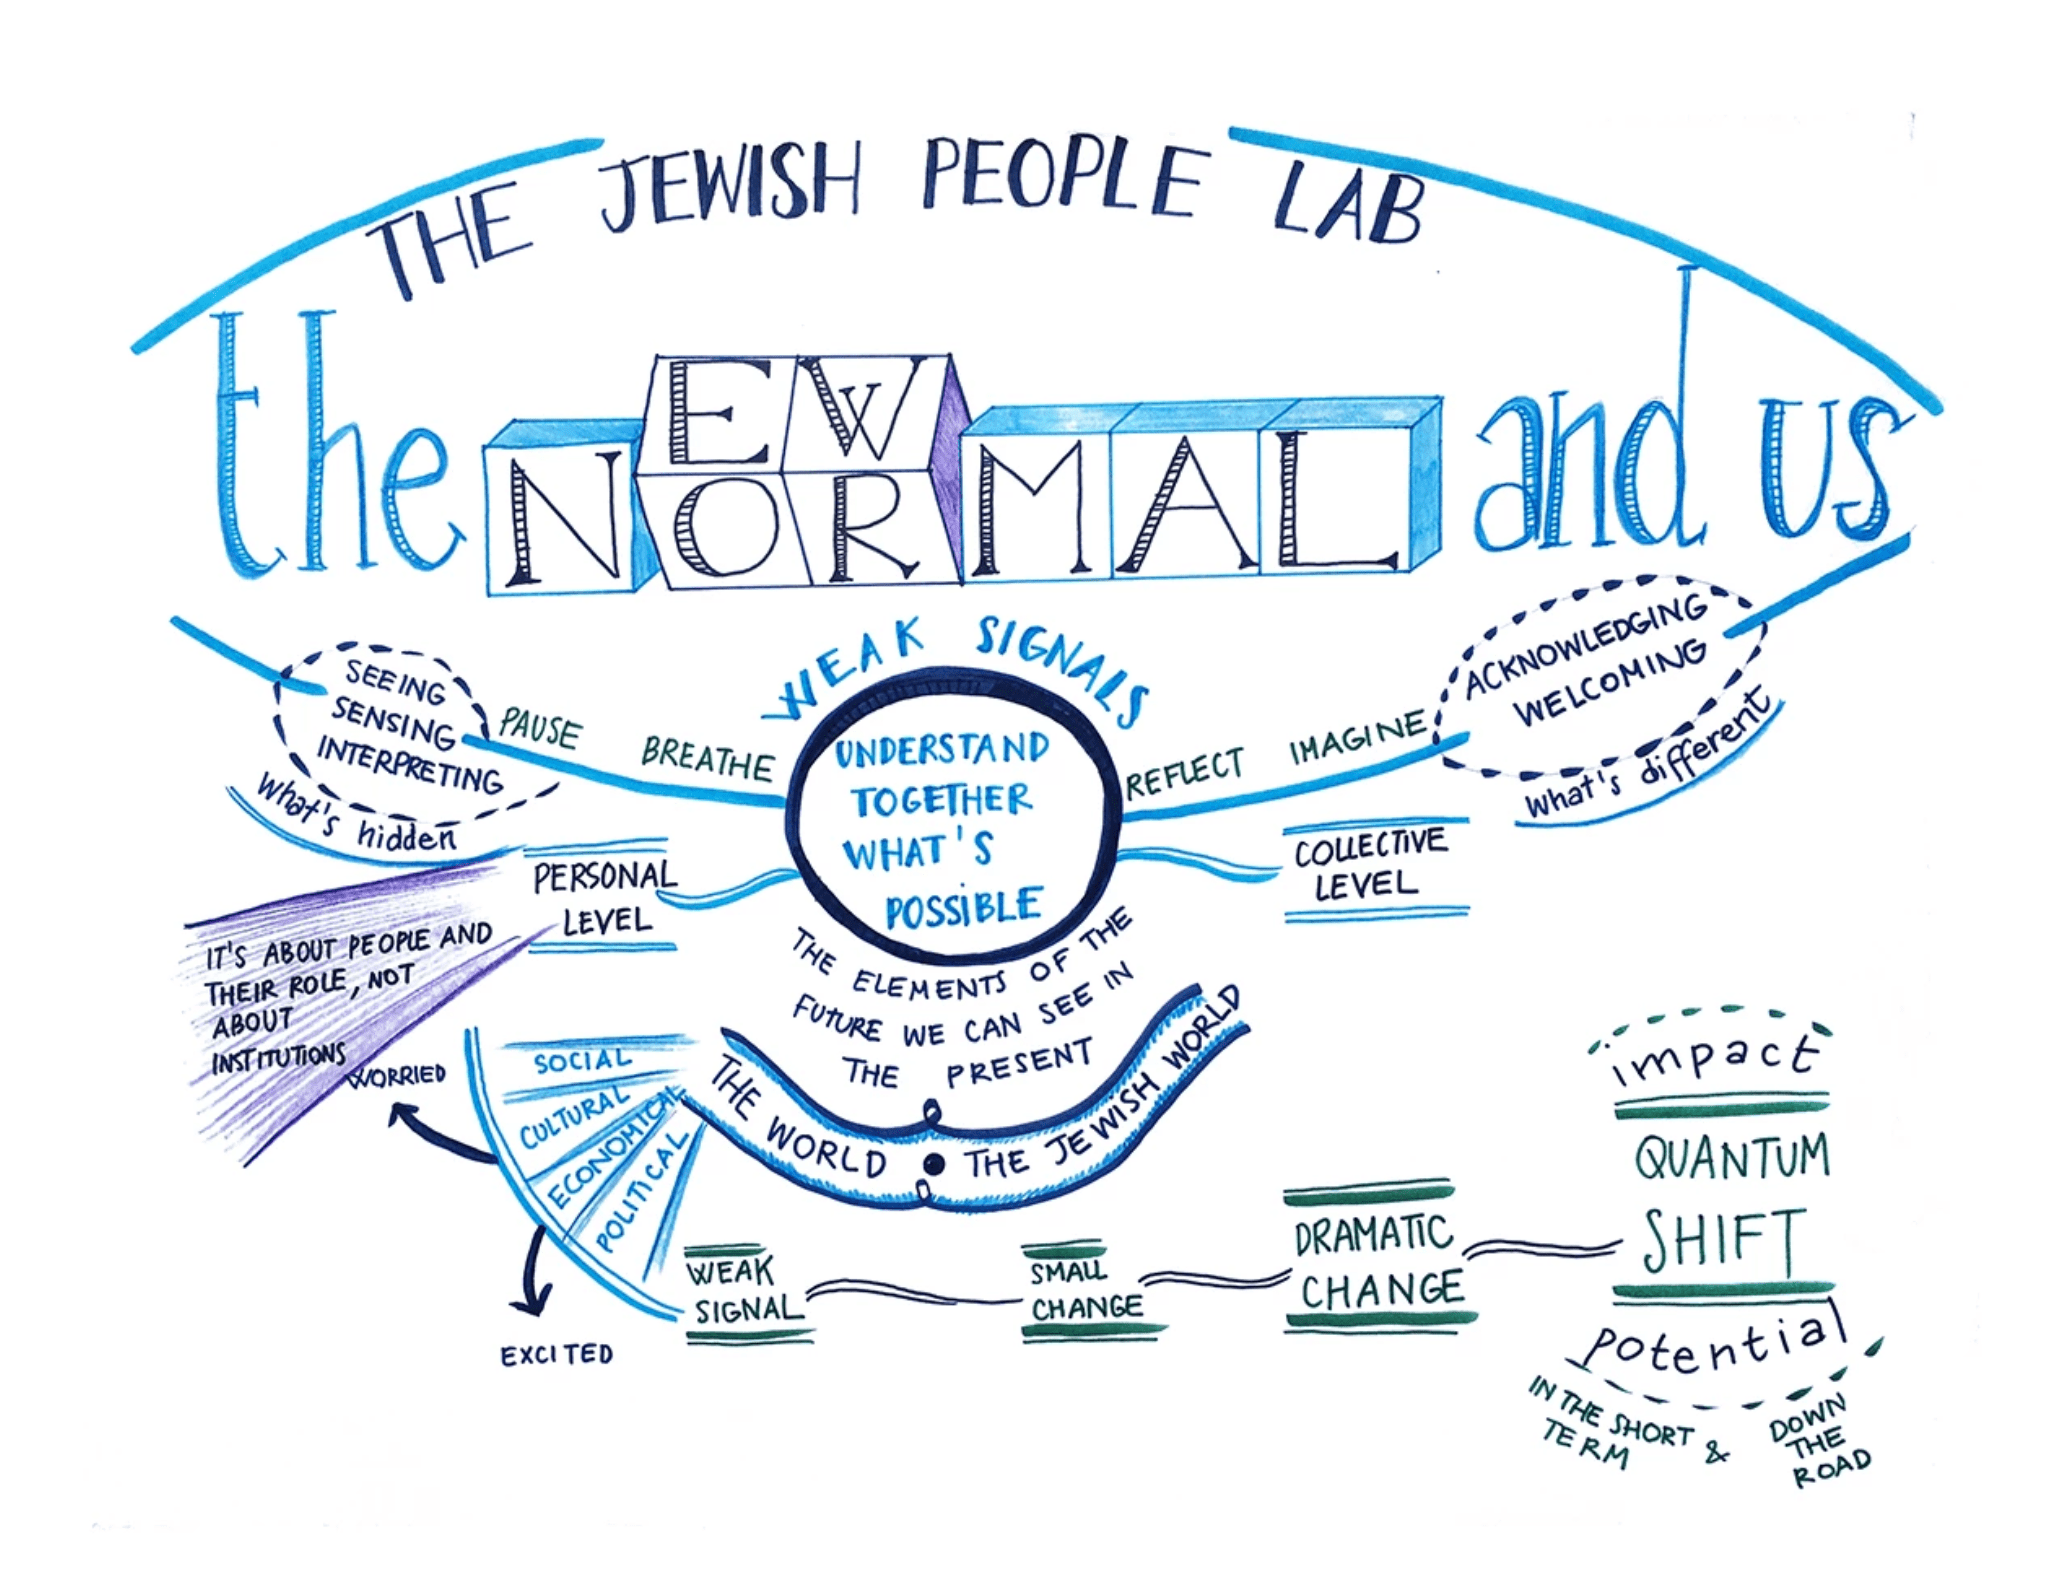 THE JEWISH PEOPLE LAB
the NEW NORMAL and us
WEAK SIGNALS
SEEING
SENSING
INTERPRETING
what's hidden
PAUSE BREATHE
UNDERSTAND
TOGETHER
WHAT'S
POSSiBLE
REFLECT IMAGINE
ACKNOWLEDGING
WELCOMING
what's different
PERSONAL
LEVEL
COLLECTIVE
LEVEL
IT'S ABOUT PEOPLE AND
THEIR ROLE, NOT
ABOUT
INSTITUTIONS
THE ELEMENTS OF THE
FUTURE WE CAN SEE IN
THE PRESENT
THE WORLD • THE JEWISH WORLD
WORRIED
SOCIAL
CULTURAL
ECONOMICAL
POLITICAL
EXCITED
WEAK
SIGNAL
SMALL
CHANGE
DRAMATIC
CHANGE
impact
QUANTUM
SHIFT
potential
IN THE SHORT
TERM
&
DOWN
THE
ROAD